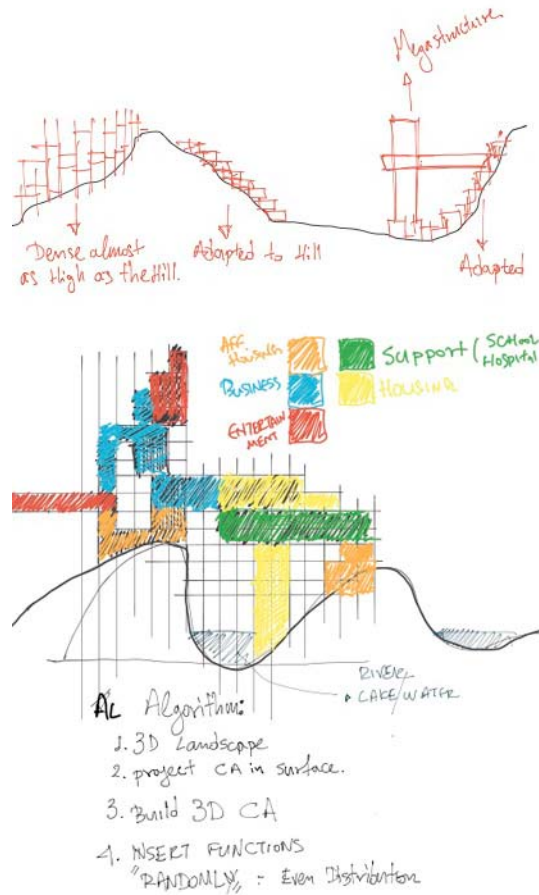 Megastructure
Dense almost
as High as the Hill.
Adapted to Hill
Adapted
AFF
HOUSING
BUSINESS
ENTERTAIN
MENT
Support (SCHOOL
HOSPITAL
HOUSING
RIVER/
LAKE/WATER
AL Algorithm:
1. 3D Landscape
2. project CA in surface.
3. Build 3D CA
4. INSERT FUNCTIONS
"RANDOMLY" - Even Distribution